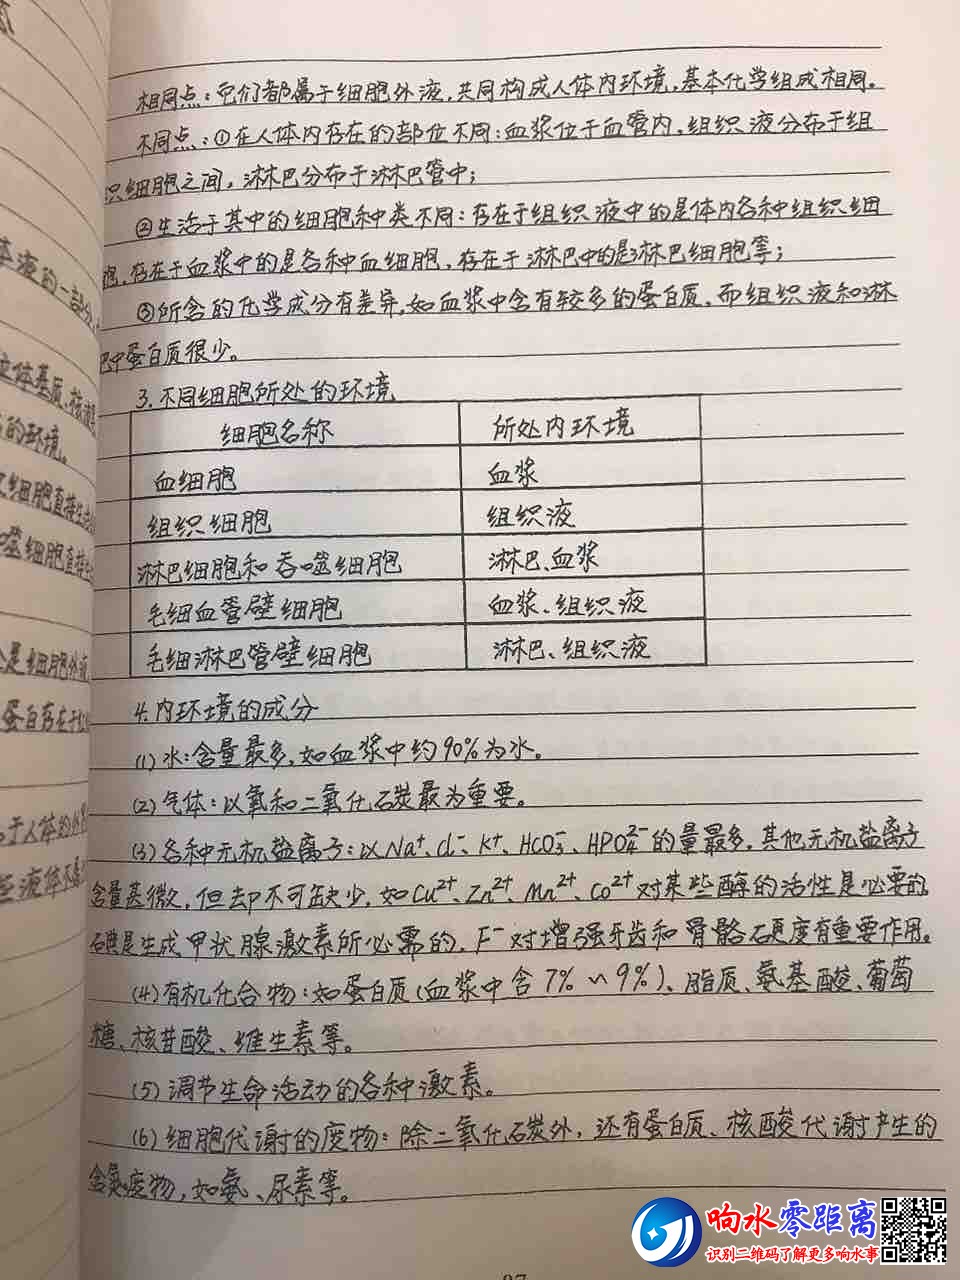 相同点：它们都属于细胞外液，共同构成人体内环境，基本化学组成相同。
不同点：①在人体内存在的部位不同：血浆位于血管内，组织液分布于组
织细胞之间，淋巴分布于淋巴管中；
②生活于其中的细胞种类不同：存在于组织液中的是体内各种组织细
胞，存在于血浆中的是各种血细胞，存在于淋巴中的是淋巴细胞等；
③所含的化学成分有差异，如血浆中含有较多的蛋白质，而组织液和淋
巴中蛋白质很少。
3.不同细胞所处的环境
细胞名称 所处内环境
血细胞 血浆
组织细胞 组织液
淋巴细胞和吞噬细胞 淋巴、血浆
毛细血管壁细胞 血浆、组织液
毛细淋巴管壁细胞 淋巴、组织液
4.内环境的成分
(1)水：含量最多，如血浆中约90%为水。
(2)气体：以氧和二氧化碳最为重要。
(3)各种无机盐离子：以Na⁺、Cl⁻、K⁺、HCO₃⁻、HPO₄²⁻的量最多，其他无机盐离子
含量甚微，但却不可缺少，如Cu²⁺、Zn²⁺、Mn²⁺、Co²⁺对某些酶的活性是必要的
碘是生成甲状腺激素所必需的，F⁻对增强牙齿和骨骼硬度有重要作用。
(4)有机化合物：如蛋白质(血浆中含7%~9%)、脂质、氨基酸、葡萄
糖、核苷酸、维生素等。
(5)调节生命活动的各种激素。
(6)细胞代谢的废物：除二氧化碳外，还有蛋白质、核酸代谢产生的
含氮废物，如氨、尿素等。
基液的一部分
立体基质、核液
的环境。
细胞直接生
噬细胞直接
是细胞外液
蛋白存在于
于人体的外界
些液体不
响水零距离
识别二维码了解更多响水事